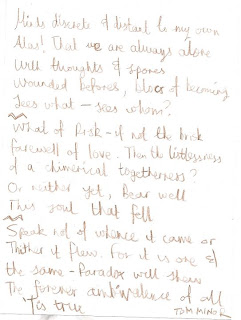 Minds discrete & distant to my own
Alas! That we are always alone
With thoughts & spores
Wounded before, of becoming
Sees what – sees whom?
What of Risk – if not the brick
farewell of love. Then the listlessness
of a chimerical togetherness?
Or neither yet, Bear well
This soul that fell
Speak not of whence it came or
Thither it flew. For it is one &
the same – Paradox will shew
The forever ambivalence of all
'Tis true
TOM MINOR